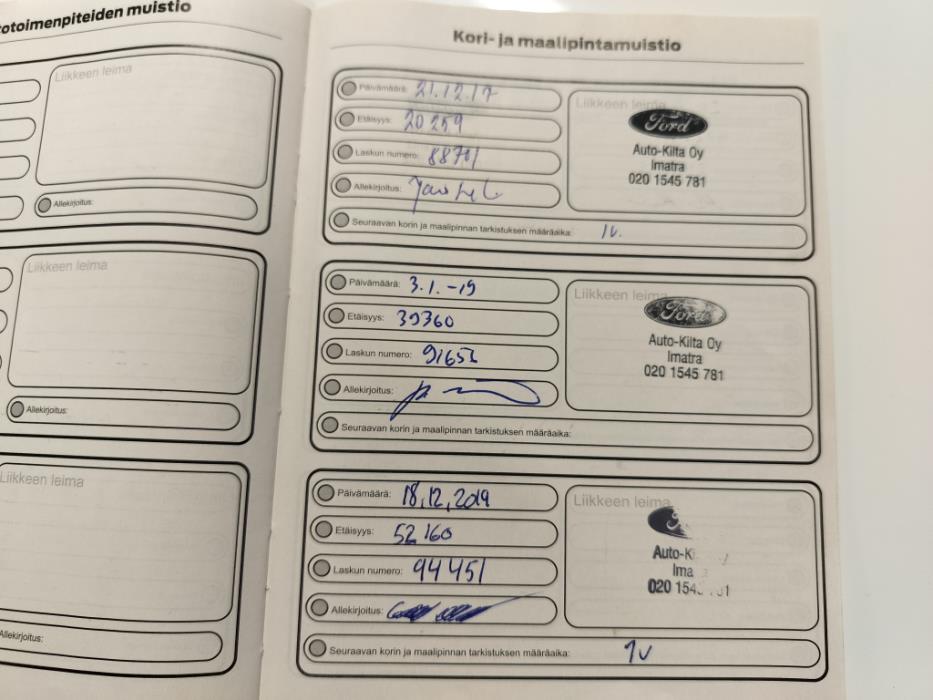 otoimenpiteiden muistio
Liikkeen leima
Allekirjoitus:
Liikkeen leima
Allekirjoitus:
Liikkeen leima
Allekirjoitus:
Kori- ja maalipintamuistio
Päivämäärä: 21.12.17
Etäisyys: 20 259
Laskun numero: 88701
Allekirjoitus:
Seuraavan korin ja maalipinnan tarkistuksen määräaika: 1v.
Liikkeen leima
Ford
Auto-Kilta Oy
Imatra
020 1545 781
Päivämäärä: 3.1.-19
Etäisyys: 39360
Laskun numero: 91653
Allekirjoitus:
Seuraavan korin ja maalipinnan tarkistuksen määräaika:
Liikkeen leima
Ford
Auto-Kilta Oy
Imatra
020 1545 781
Päivämäärä: 18,12,2019
Etäisyys: 52 160
Laskun numero: 94451
Allekirjoitus:
Seuraavan korin ja maalipinnan tarkistuksen määräaika: 1v
Liikkeen leima
Auto-K
Ima
020 154